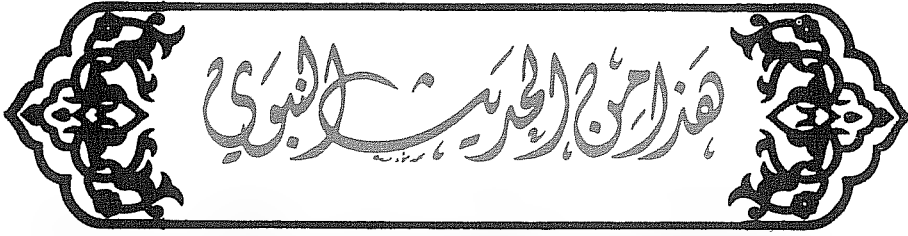 هَذَا مِنَ الحَدِيثِ النَّبَوِي